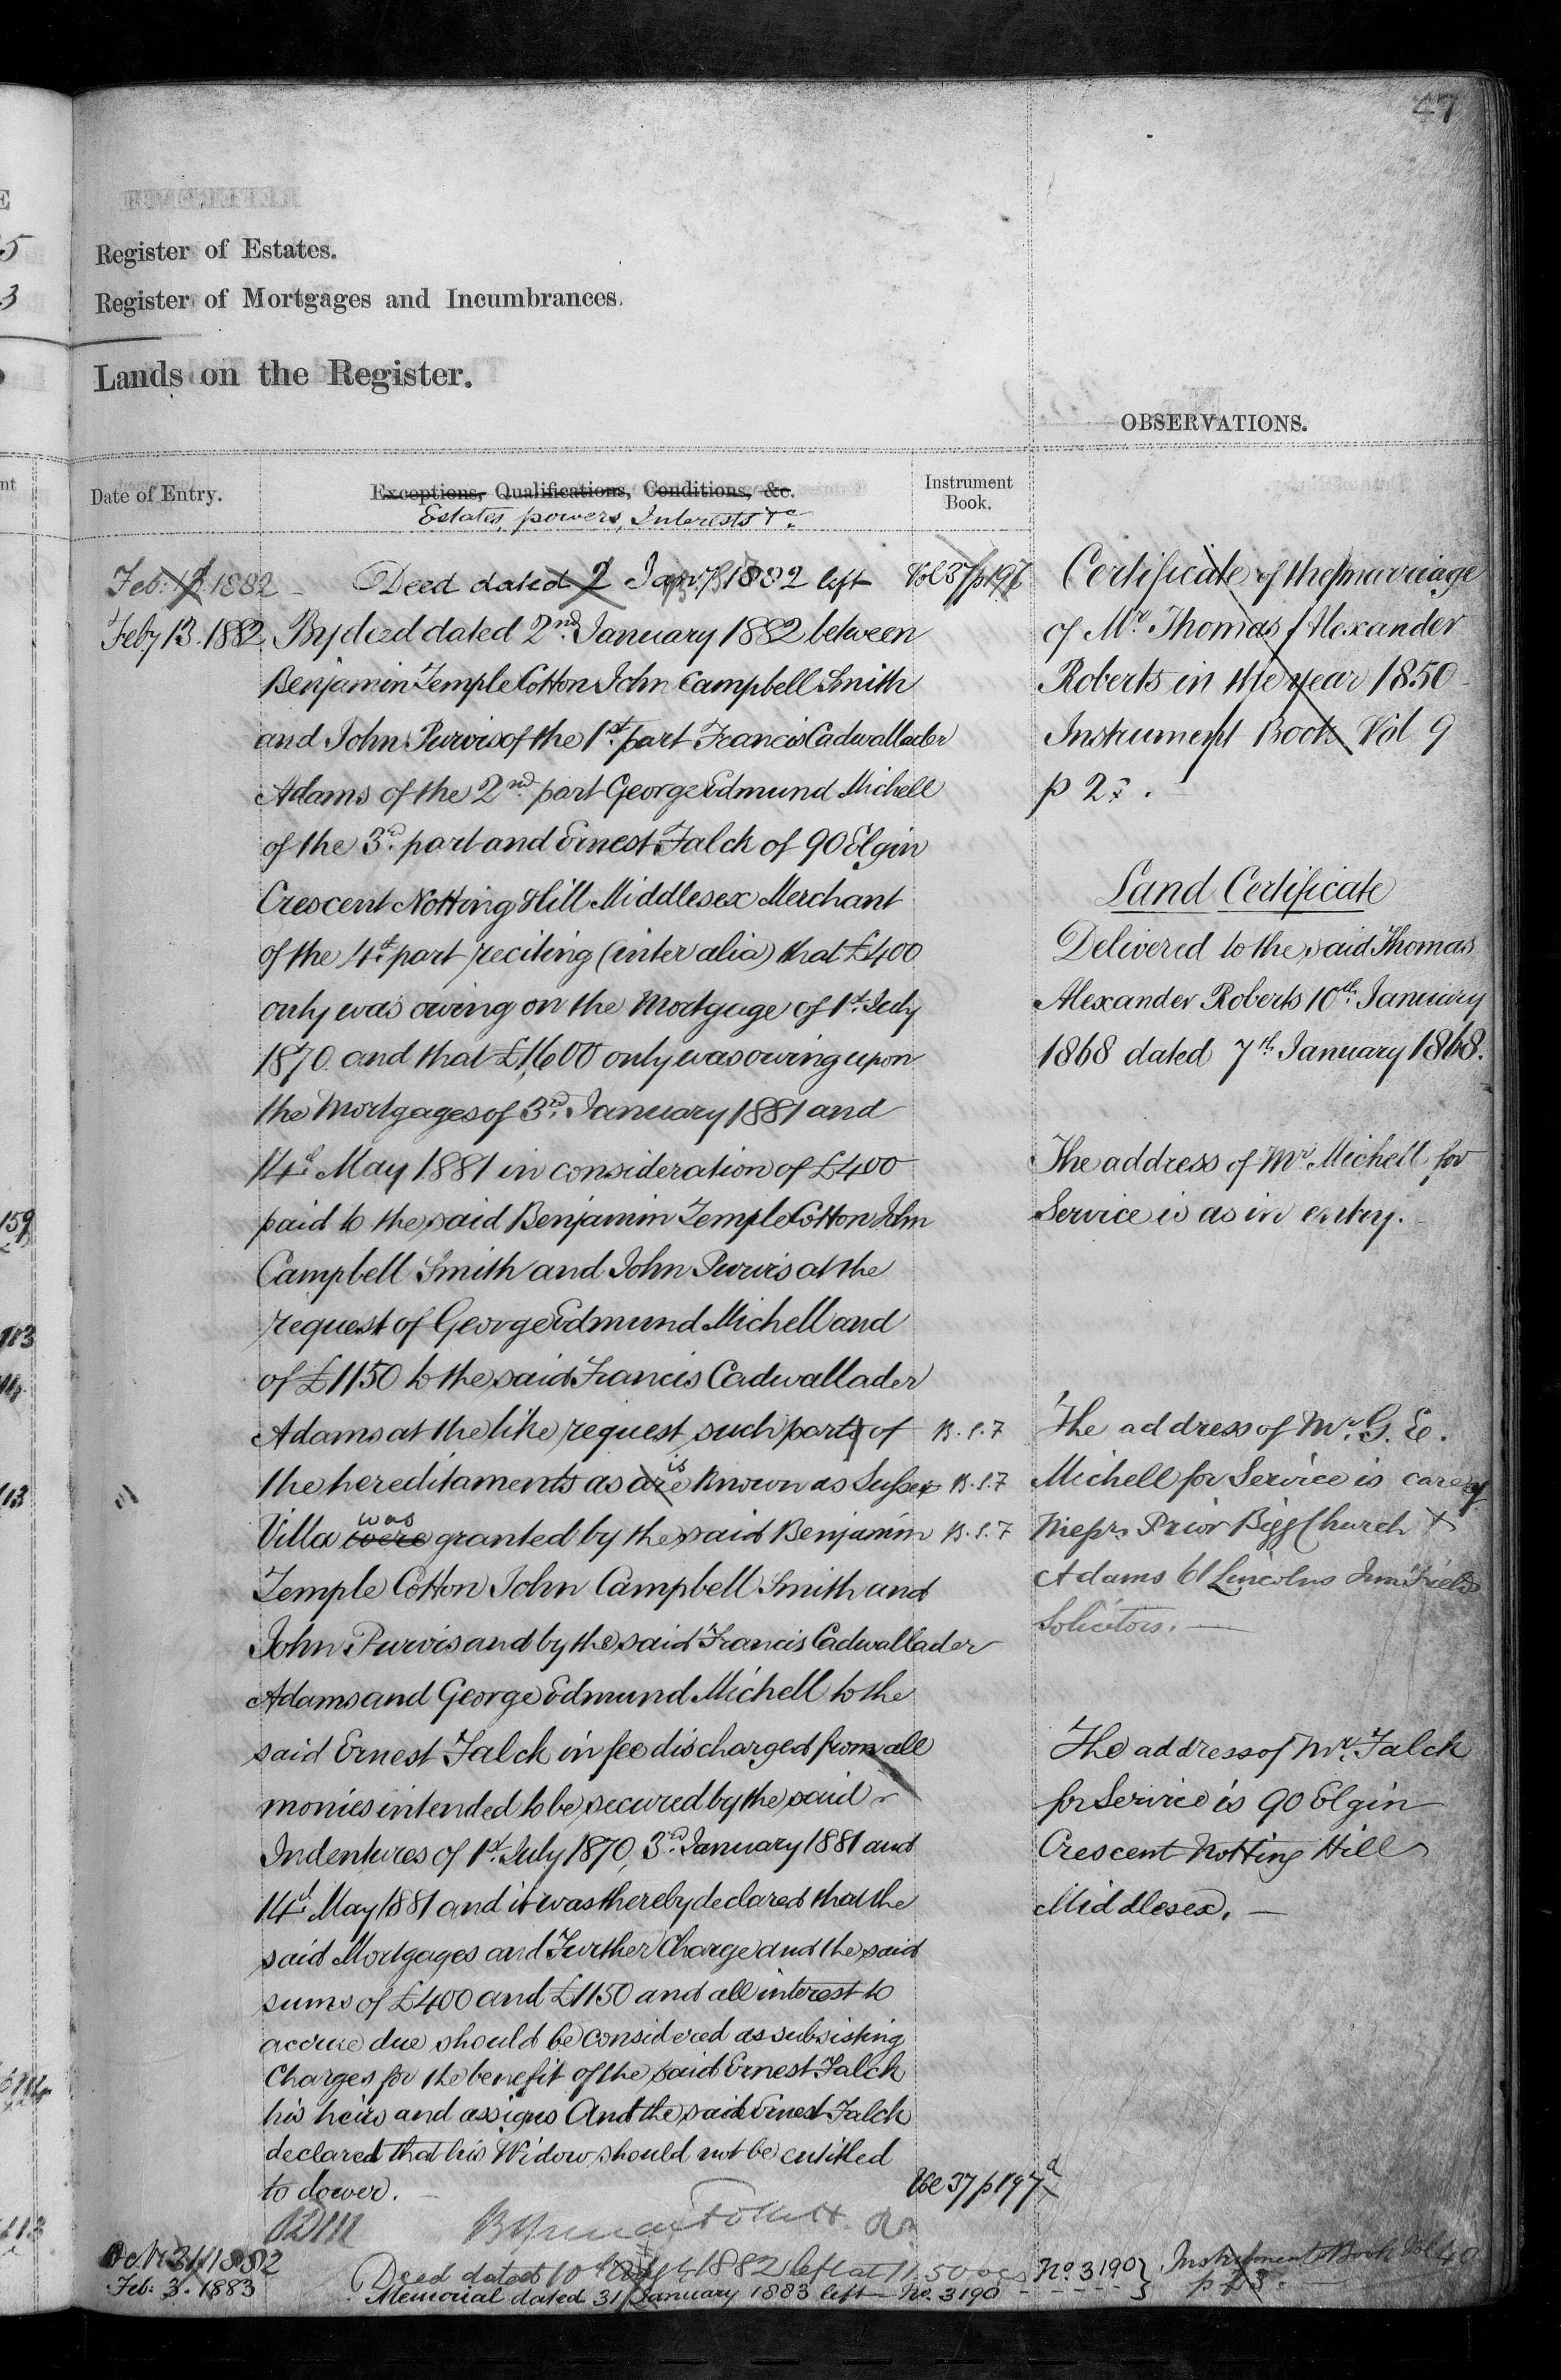 47
Register of Estates.
Register of Mortgages and Incumbrances.
Lands on the Register.
OBSERVATIONS.
Date of Entry.
Exceptions, Qualifications, Conditions, &c.
Estates, powers, Interests &c.
Instrument
Book.
Feb: 1882 Deed dated 2 Jan 1882 left Vol 37 p 197
Feby 13. 1882 By deed dated 2nd January 1882 between
Benjamin Temple Cotton John Campbell Smith
and John Purvis of the 1st part Francis Cadwallader
Adams of the 2nd part George Edmund Michell
of the 3rd part and Ernest Falck of 90 Elgin
Crescent Notting Hill Middlesex Merchant
of the 4th part reciting (inter alia) that £400
only was owing on the Mortgage of 1st July
1870 and that £1,600 only was owing upon
the Mortgages of 3rd January 1881 and
14th May 1881 in consideration of £400
paid to the said Benjamin Temple Cotton John
Campbell Smith and John Purvis at the
request of George Edmund Michell and
of £1150 to the said Francis Cadwallader
Adams at the like request such parts of B.S.7
the hereditaments as are is known as Sussex B.S.7
Villa were was granted by the said Benjamin B.S.7
Temple Cotton John Campbell Smith and
John Purvis and by the said Francis Cadwallader
Adams and George Edmund Michell to the
said Ernest Falck in fee discharged from all
monies intended to be secured by the said
Indentures of 1st July 1870, 3rd January 1881 and
14th May 1881 and it was thereby declared that the
said Mortgages and Further Charge and the said
sums of £400 and £1150 and all interest to
accrue due should be considered as subsisting
Charges for the benefit of the said Ernest Falck
his heirs and assigns And the said Ernest Falck
declared that his Widow should not be entitled
to dower.
Vol 37 p 197
1882 Deed dated 10th 1882 left at 11.50 No. 3190
Feb: 3. 1883 Memorial dated 31 January 1883 left No. 3190
Certificate of the marriage
of Mr. Thomas Alexander
Roberts in the year 1850
Instrument Book Vol 9
p 23.
Land Certificate
Delivered to the said Thomas
Alexander Roberts 10th January
1868 dated 7th January 1868.
The address of Mr Michell for
Service is as in entry.
The address of Mr. G. E.
Michell for Service is care of
Messrs Prior Bigg Church &
Adams 61 Lincolns Inn Fields
Solicitors.
The address of Mr. Falck
for Service is 90 Elgin
Crescent Notting Hill
Middlesex.
Instrument Book Vol 40